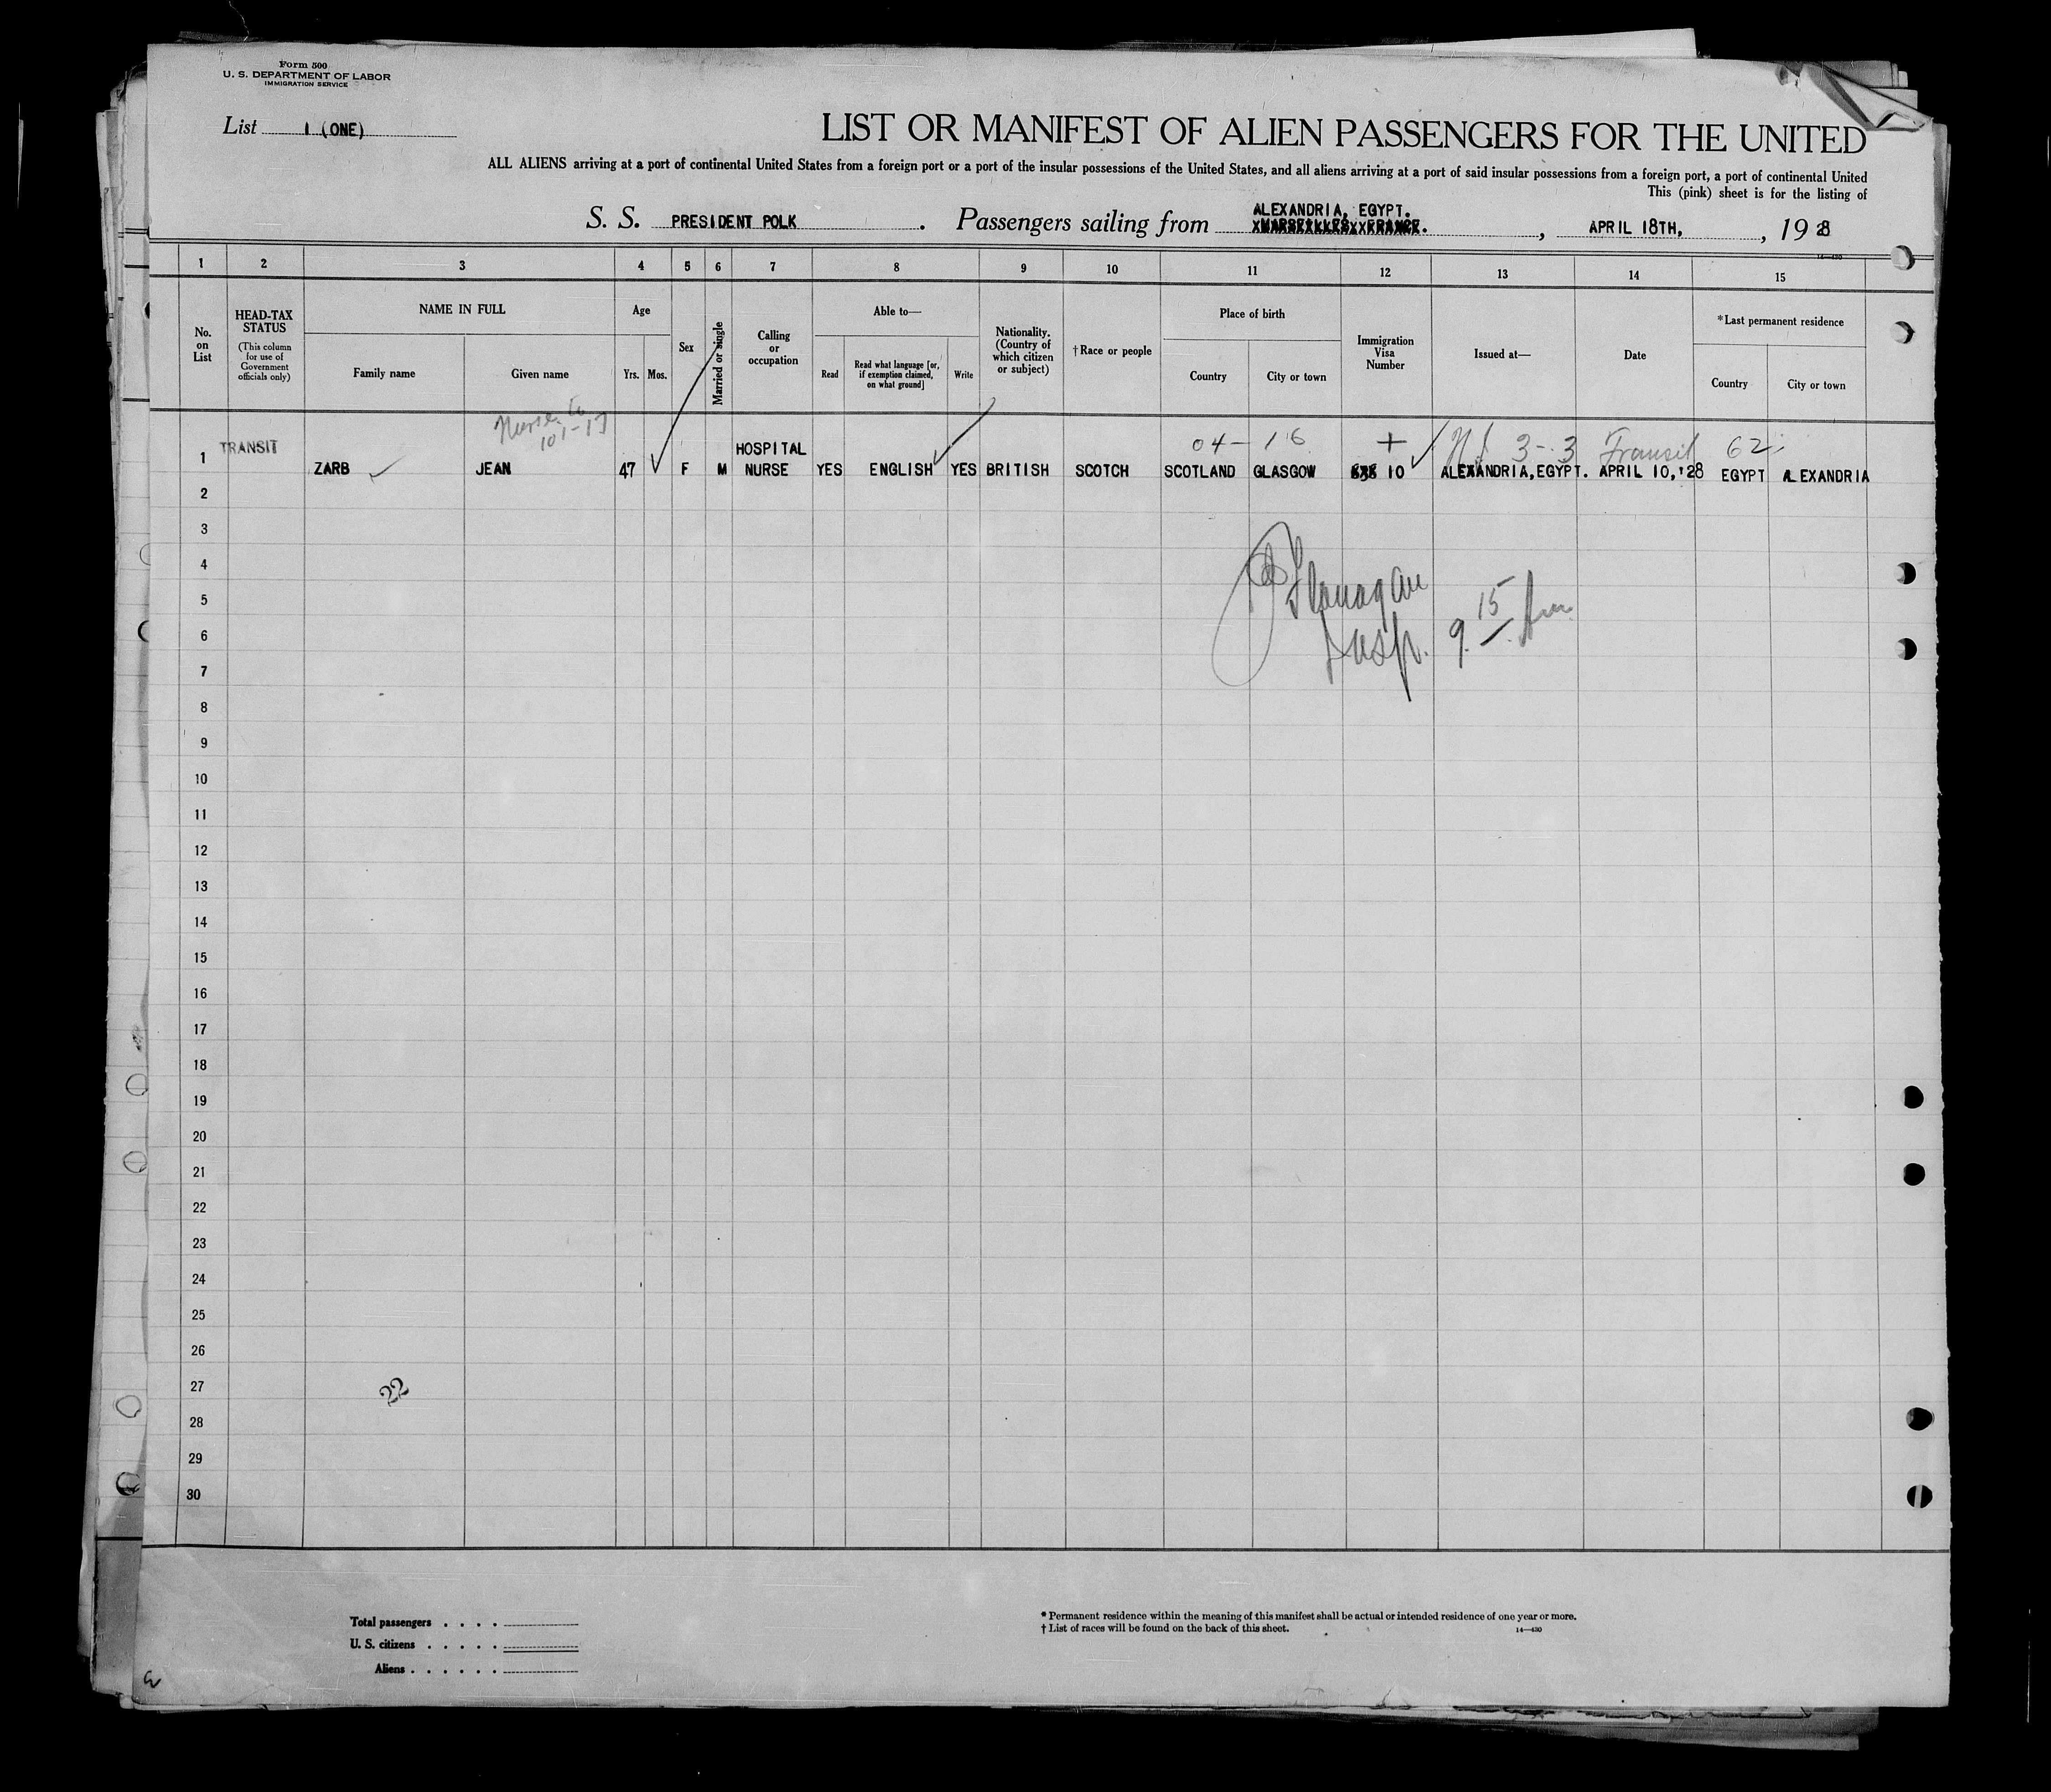 Form 500
U. S. DEPARTMENT OF LABOR
IMMIGRATION SERVICE
List 1 (ONE)
LIST OR MANIFEST OF ALIEN PASSENGERS FOR THE UNITED
ALL ALIENS arriving at a port of continental United States from a foreign port or a port of the insular possessions of the United States, and all aliens arriving at a port of said insular possessions from a foreign port, a port of continental United
This (pink) sheet is for the listing of
ALEXANDRIA, EGYPT.
S. S. PRESIDENT POLK. Passengers sailing from XMARSEILLESXXFRANCE., APRIL 18TH, , 1928
14—430
1 2 3 4 5 6 7 8 9 10 11 12 13 14 15
No. on List
HEAD-TAX STATUS
(This column for use of Government officials only)
NAME IN FULL
Family name
Given name
Age
Yrs. Mos.
Sex
Married or single
Calling or occupation
Able to—
Read
Read what language [or, if exemption claimed, on what ground]
Write
Nationality. (Country of which citizen or subject)
†Race or people
Place of birth
Country
City or town
Immigration Visa Number
Issued at—
Date
*Last permanent residence
Country
City or town
Nurse to
101-17
04-16 + 3-3 Transit 62
1 TRANSIT ZARB JEAN 47 F M HOSPITAL NURSE YES ENGLISH YES BRITISH SCOTCH SCOTLAND GLASGOW 10 ALEXANDRIA, EGYPT. APRIL 10, '28 EGYPT ALEXANDRIA
2
3
4
Flanagan
5
Insp. 9.15 Am
6
7
8
9
10
11
12
13
14
15
16
17
18
19
20
21
22
23
24
25
26
27
22
28
29
30
Total passengers . . . .
U. S. citizens . . . . .
Aliens . . . . . .
* Permanent residence within the meaning of this manifest shall be actual or intended residence of one year or more.
† List of races will be found on the back of this sheet.
14—430